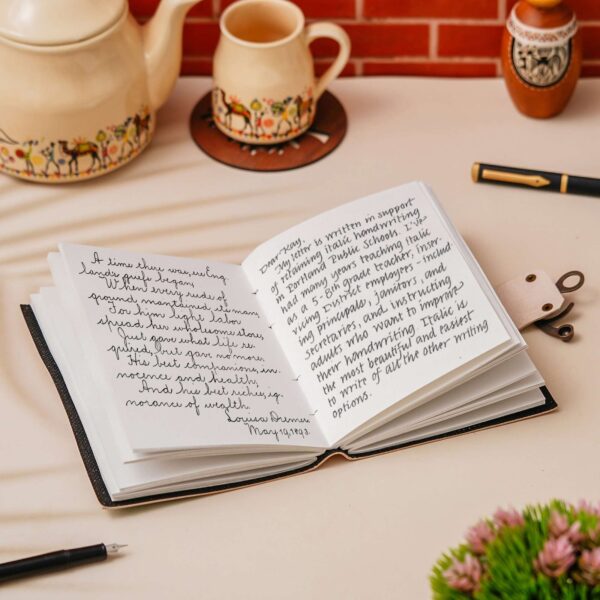 A time there was, ere Eng
land's griefs began,
When every rude of
ground maintained its man;
For him light labor
spread her wholesome store,
Just gave what life re
quired, but gave no more.
His best companions, in
nocence and health;
And his best riches, ig
norance of wealth.
Louisa
May 19, 1893.
Dear Kay,
My letter is written in support
of retaining italic handwriting
in Portland Public Schools. I've
had many years teaching italic
as a 5-8th grade teacher, inser-
vicing District employees - includ-
ing principals, janitors, and
secretaries, and instructing
adults who want to improve
their handwriting. Italic is
the most beautiful and easiest
to write of all the other writing
options.